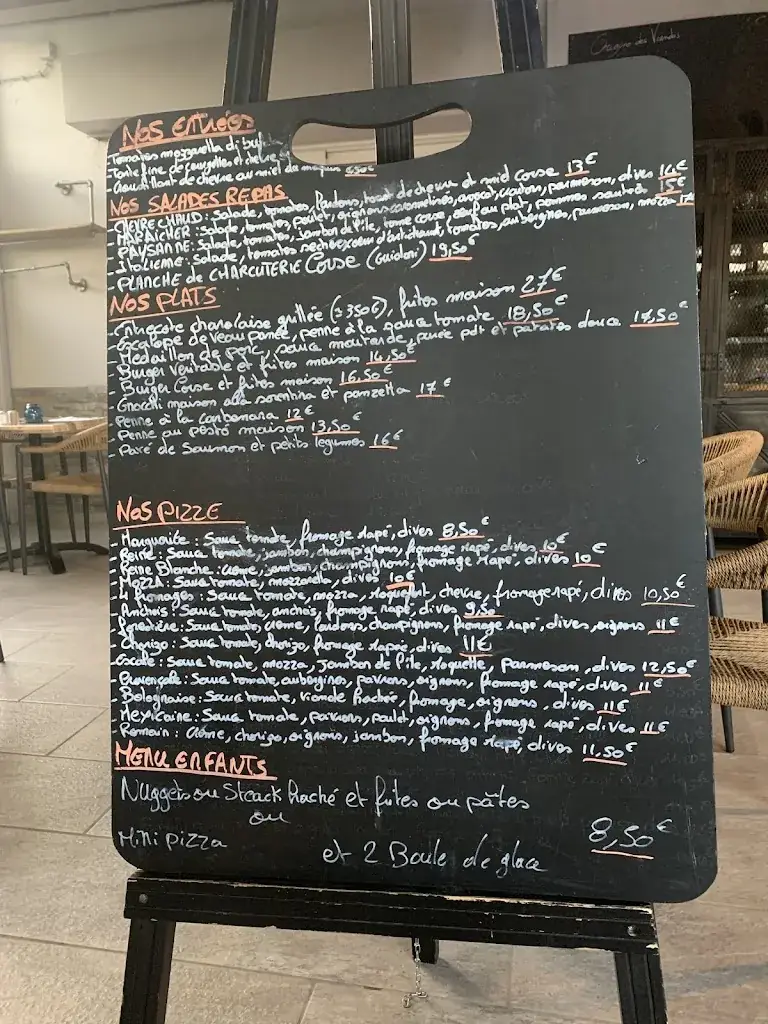 Origine des Viandes
NOS ENTRÉES
- Tomates mozzarella di
- Tarte fine de courgettes et chèvre
- Croustillant de chèvre au miel du maquis 6,50€
NOS SALADES REPAS
- CHEVRE CHAUD: Salade, tomates, lardons, toast de chevre et miel Corse 13€
- MARAÎCHER: Salade, tomates, poulet, oignons caramélisés, avocat, crouton, parmesan, olives 14€
- PAYSANNE: Salade, tomates, jambon de l'île, tome corse, oeuf au plat, pommes sautées 15€
- ITALIENNE: Salade, tomates sechées, coeur d'artichaut, tomates, aubergines, parmesan, mozza 17€
- PLANCHE de CHARCUTERIE Corse (Guidoni) 19,50€
NOS PLATS
- Entrecote charolaise grillée (±350g), frites maison 27€
- Escalope de veau panée, penne à la sauce tomate 18,50€
- Médaillon de porc, sauce moutarde, purée pdt et patates douce 17,50€
- Burger Véritable et frites maison 14,50€
- Burger Corse et frites maison 16,50€
- Gnocchi maison alla sorentina et panzetta 17€
- Penne à la carbonara 12€
- Penne au pesto maison 13,50€
- Pavé de Saumon et petits légumes 16€
NOS PIZZE
- Marguerite: Sauce tomate, fromage rapé, olives 8,50€
- Reine: Sauce tomate, jambon, champignons, fromage rapé, olives 10€
- Reine Blanche: crème, jambon, champignons, fromage rapé, olives 10€
- Mozza: Sauce tomate, mozzarella, olives 10€
- 4 fromages: Sauce tomate, mozza, roquefort, chevre, fromage rapé, olives 10,50€
- Anchois: Sauce tomate, anchois, fromage rapé, olives 9,50
- Forestière: Sauce tomate, crème, lardons, champignons, fromage rapé, olives, oignons 11€
- Chorizo: Sauce tomate, chorizo, fromage rapée, olives 11€
- Escale: Sauce tomate, mozza, Jambon de l'île, roquette, parmesan, olives 12,50€
- Provençale: Sauce tomate, aubergines, poivrons, oignons, fromage rapé, olives 11€
- Bolognaise: Sauce tomate, viande haché, fromage, oignons, olives 11€
- Mexicaine: Sauce tomate, poivrons, poulet, oignons, fromage rapé, olives 11€
- Romain: Crème, chorizo, oignons, jambon, fromage rapé, olives 11,50€
MENU ENFANTS
Nuggets ou Steack haché et frites ou pâtes
ou
Mini Pizza
8,50€
et 2 Boule de glace